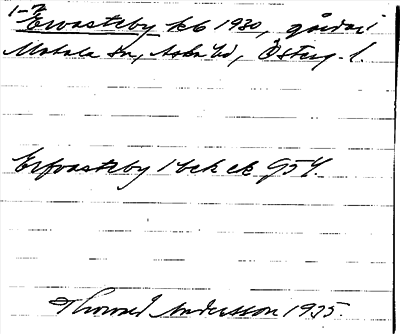 1-2
Ervasteby kb 1930, gårdar i
Motala sn, Aska hd, Österg. l.
Erfvasteby 1 bek ek G54.
Thorsed Andersson 1935.